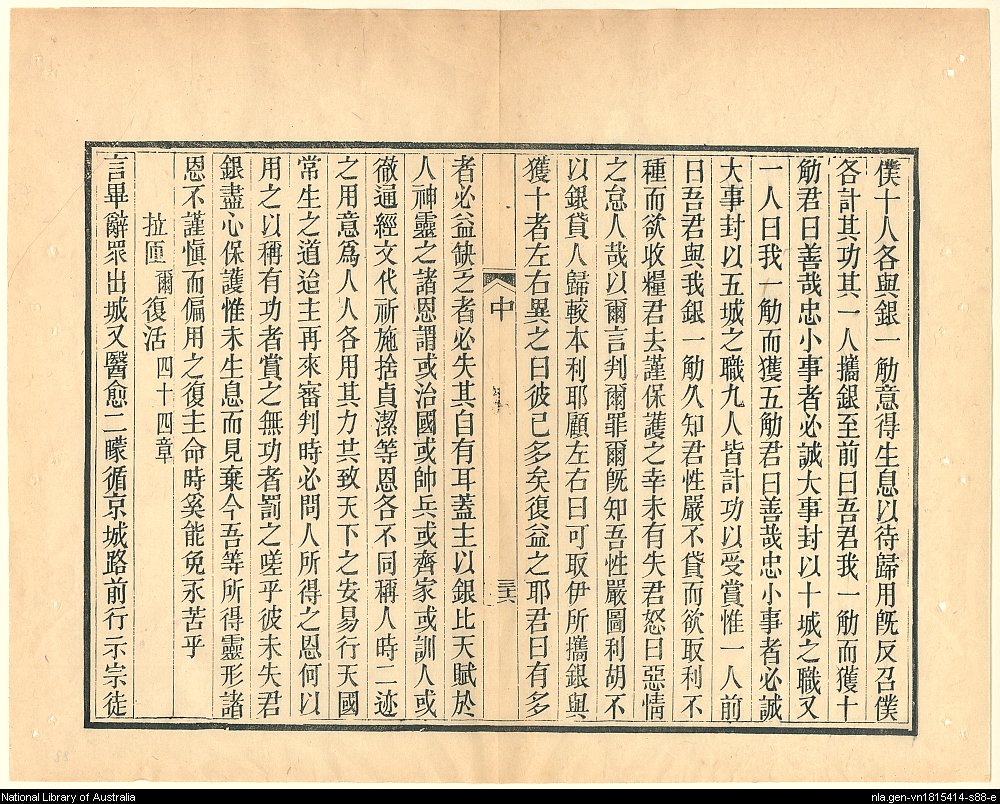 僕十人各與銀一觔意得生息以待歸用旣反召僕
各計其功其一人攜銀至前曰吾君我一觔而獲十
觔君曰善哉忠小事者必誠大事封以十城之職又
一人曰我一觔而獲五觔君曰善哉忠小事者必誠
大事封以五城之職九人皆計功以受賞惟一人前
曰吾君與我銀一觔久知君性嚴不貸而欲取利不
種而欲收糧君去謹保護之幸未有失君怒曰惡情
之怠人哉以爾言判爾罪爾旣知吾性嚴圖利胡不
以銀貸人歸較本利耶顧左右曰可取伊所攜銀與
獲十者左右異之曰彼已多矣復益之耶君曰有多
中
三十六
者必益缺乏者必失其自有耳蓋主以銀比天賦於
人神靈之諸恩謂或治國或帥兵或齊家或訓人或
徹通經文代祈施捨貞潔等恩各不同稱人時二迹
之用意爲人人各用其力共致天下之安易行天國
常生之道迨主再來審判時必問人所得之恩何以
用之以稱有功者賞之無功者罰之嗟乎彼未失君
銀盡心保護惟未生息而見棄今吾等所得靈形諸
恩不謹愼而偏用之復主命時奚能免永苦乎
拉匝爾復活 四十四章
言畢辭眾出城又醫愈二矇循京城路前行示宗徒
National Library of Australia
nla.gen-vn1815414-s88-e